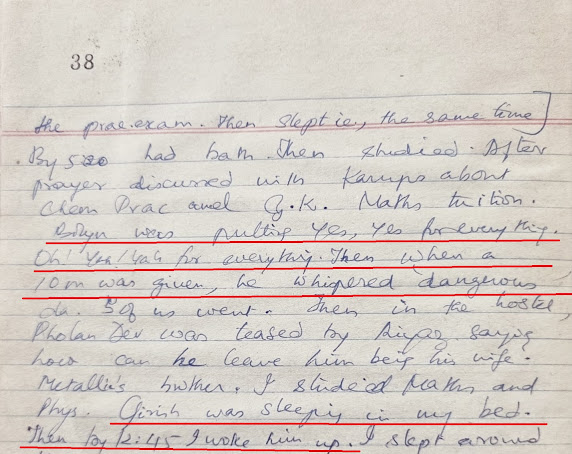 38
the prac.exam. Then slept ie, the same time]
. By 5 20 had bath. Then studied. After
prayer discussed with Karups about
Chem Prac and G.K. Maths tuition.
was putting Yes, Yes for everything.
Oh! Yah! Yah for everything. Then when a
10 m was given, he whispered dangerous
da. 5 of us went. Then in the hostel,
Pholan Dev was teased by Riyaz saying
how can he leave him being his wife.
Metallic's brother. I studied Maths and
Phys. Girish was sleeping in my bed.
Then by 12:45 I woke him up. I slept around